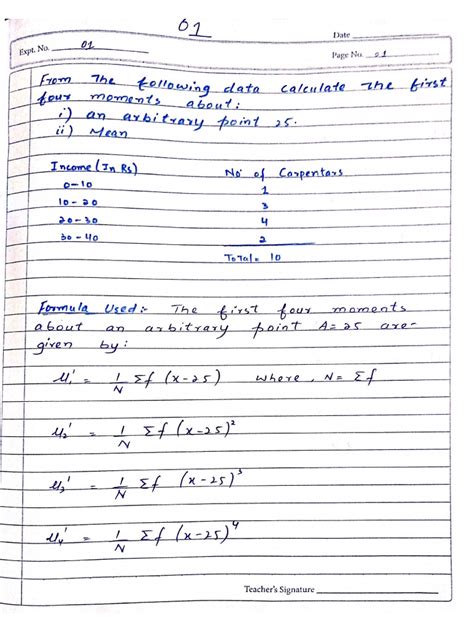 01
Date
Expt. No. 01
Page No. 01
From The following data calculate the first
four moments about:
i) an arbitrary point 25.
ii) Mean
Income (In Rs) No of Carpentars
0-10 1
10-20 3
20-30 4
30-40 2
Total = 10
Formula Used:- The first four moments
about an arbitrary point A=25 are-
given by:
μ₁' = 1/N Σf (x-25) where, N= Σf
μ₂' = 1/N Σf (x-25)²
μ₃' = 1/N Σf (x-25)³
μ₄' = 1/N Σf (x-25)⁴
Teacher's Signature